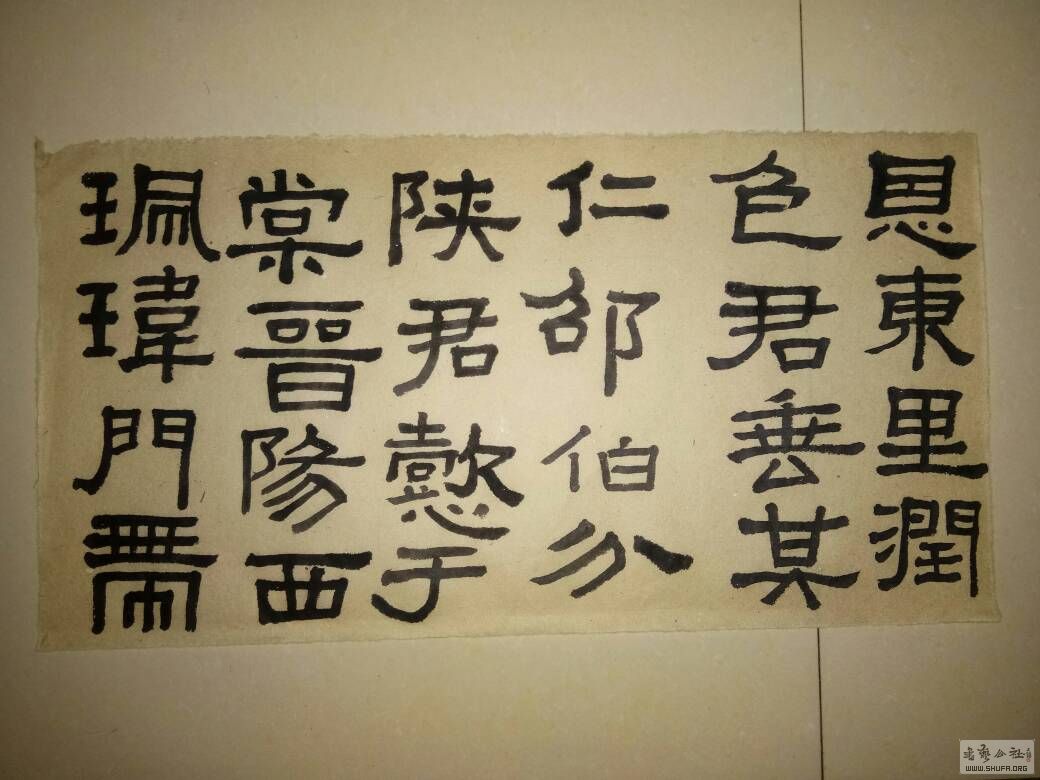 恩東里潤
色君垂其
仁邵伯分
陝君懿于
棠晉陽西
珮瑋門帶
書藝公社
WWW.SHUFA.ORG